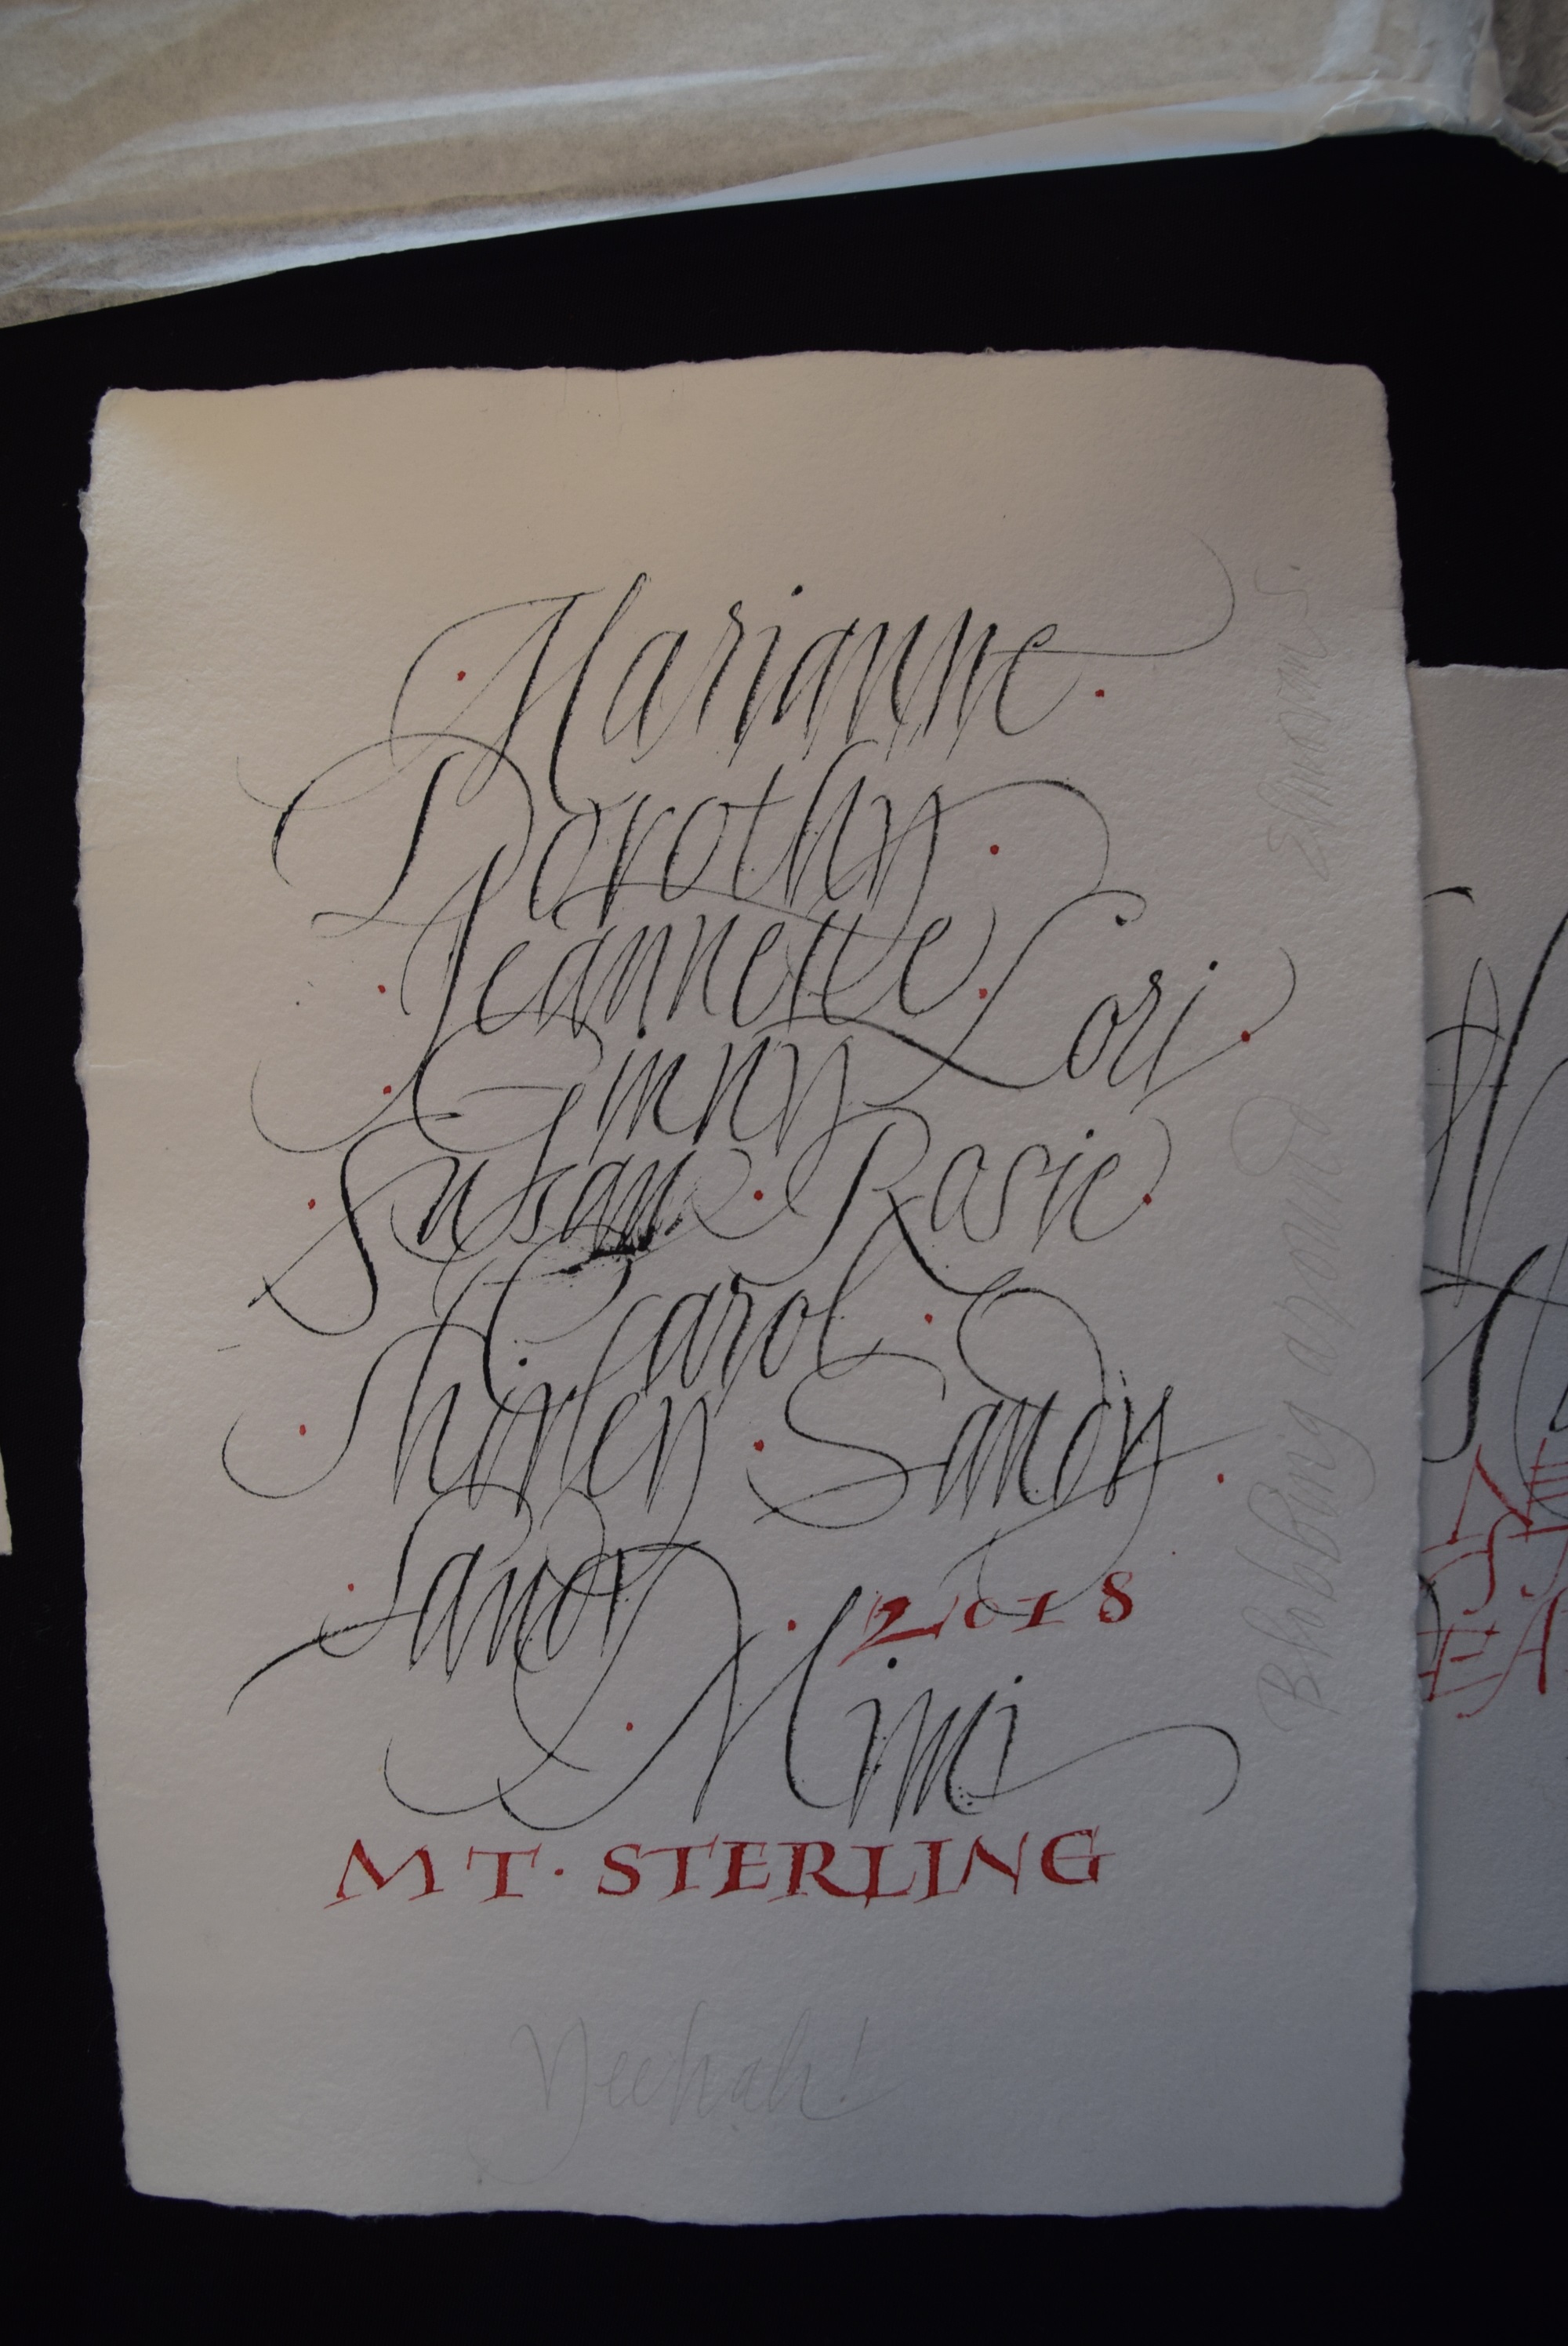 Marianne
Dorothy
Jeannette Lori
Ginny
Susan Rosie
Carol
Shirley Sandy
Sandy
2018
Mimi
MT · STERLING
Yeehah!
Blobbing around